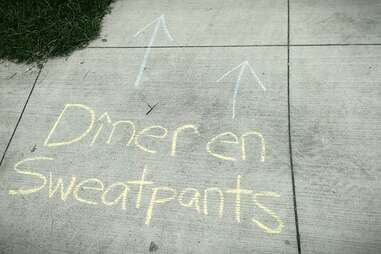 Dîner en
Sweatpants